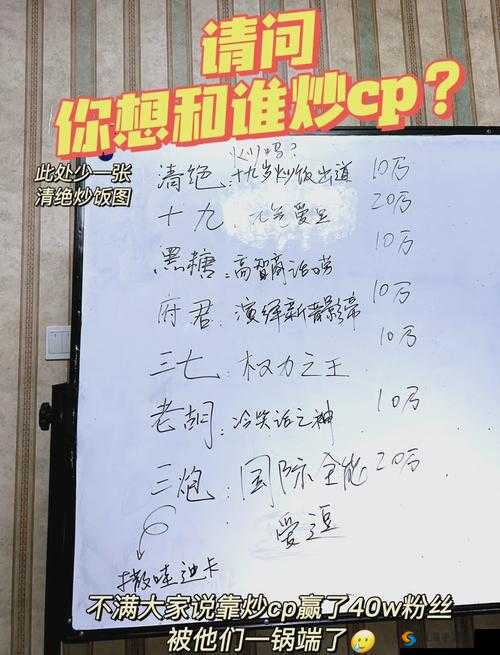 请问
你想和谁炒cp？
此处少一张
清绝炒饭图
火吗？
清绝：十九岁炒饭出道 10万
十九：元气爱豆 20万
黑糖：高智商话痨 10万
府君：演绎新晋影帝 10万
三七：权力之王 10万
老胡：冷笑话之神 10万
三炮：国际全能 20万
爱逗
撒哇迪卡
不满大家说靠炒cp赢了40w粉丝
被他们一锅端了